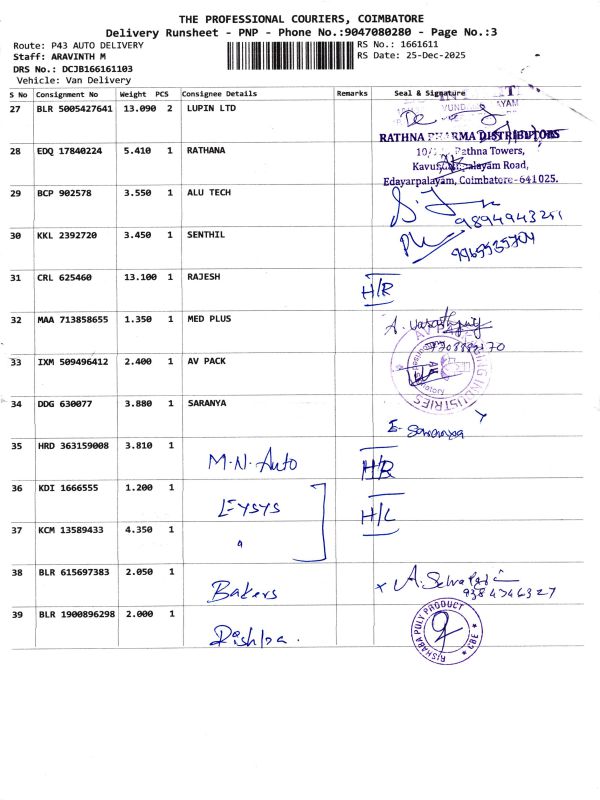 THE PROFESSIONAL COURIERS, COIMBATORE
Delivery Runsheet - PNP - Phone No.:9047080280 - Page No.:3
Route: P43 AUTO DELIVERY RS No.: 1661611
Staff: ARAVINTH M RS Date: 25-Dec-2025
DRS No.: DCJB166161103
Vehicle: Van Delivery
S No Consignment No Weight PCS Consignee Details Remarks Seal & Signature
27 BLR 5005427641 13.090 2 LUPIN LTD
RATHNA PHARMA DISTRIBUTORS
28 EDQ 17840224 5.410 1 RATHANA
Rathna Towers,
Road,
Edayarpalayam, Coimbatore-641025.
29 BCP 902578 3.550 1 ALU TECH
30 KKL 2392720 3.450 1 SENTHIL
31 CRL 625460 13.100 1 RAJESH H/R
32 MAA 713858655 1.350 1 MED PLUS
33 IXM 509496412 2.400 1 AV PACK
34 DDG 630077 3.880 1 SARANYA
35 HRD 363159008 3.810 1 M.N. Auto H/R
36 KDI 1666555 1.200 1 H/L
37 KCM 13589433 4.350 1 "
38 BLR 615697383 2.050 1 Bakers
9384746327
39 BLR 1900896298 2.000 1
RISHABA PULY PRODUCT
CBE